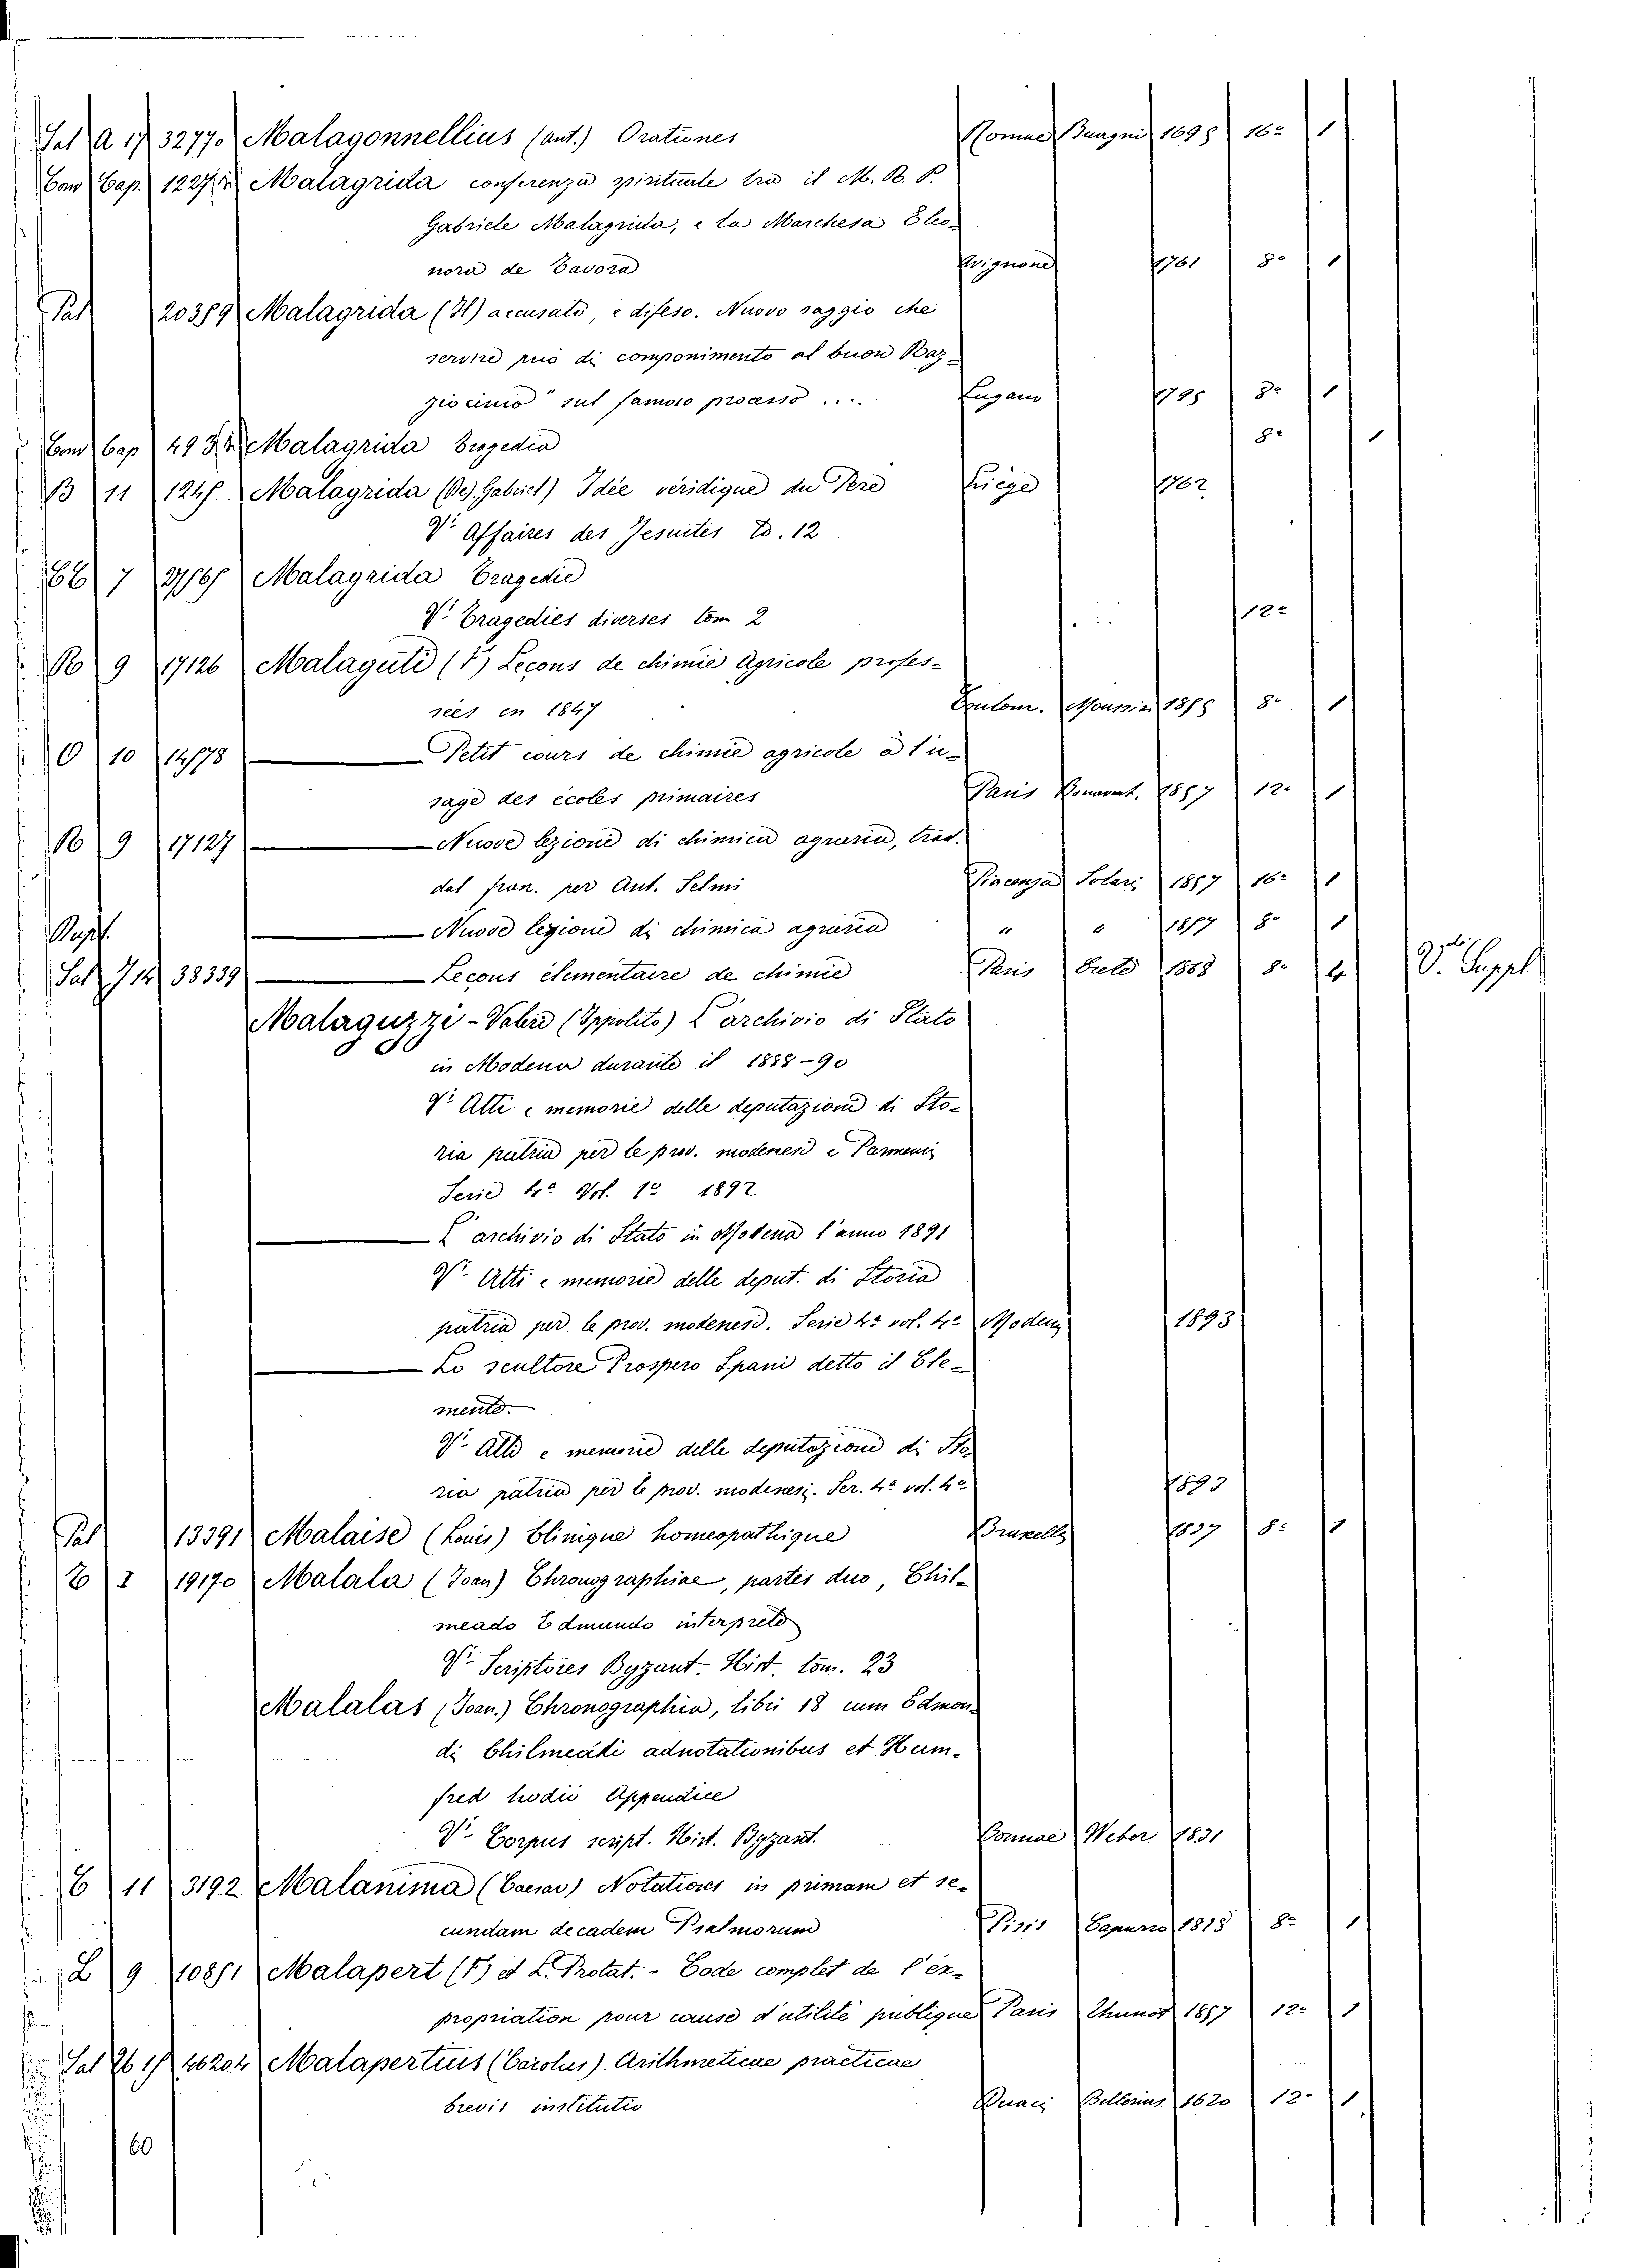 Sal A 17 32770 Malagonnellius (ant.) Orationes Romae Buagni 1695 16º 1
Cam Cap. 1227 Malagrida conferenza spirituale tra il M. R. P.
Gabriele Malagrida, e la Marchesa Eleo-
nora de Tavora Avignone 1761 8º 1
Sal 20359 Malagrida (Il) accusato, e difeso. Nuovo saggio che
servire può di componimento al buon Raz-
ziocinio "sul famoso processo .... Lugano 1795 8º 1
Cam Cap 493 Malagrida Tragedia 8º 1
B 11 1245 Malagrida (De) Gabriel) Idée véridique du Père Liège 1762
Vº Affaires des Jesuites To. 12
66 7 2756 Malagrida Tragedie
Vº Tragedies diverses tom 2 12º
Ro 9 17126 Malaguti (F) Leçons de chimie Agricole profes-
sées en 1847 Toulom. Moussin 1855 8º 1
O 10 14578 Petit cours de chimie agricole à l'u-
sage des écoles primaires Paris 1857 12º 1
Ro 9 17127 Nuove lezioni di chimica agraria, trad.
dal fran. per Ant. Selmi Piacenza Solari 1857 16º 1
Nuove lezioni di chimica agraria " " 1857 8º 1
Sal J 14 38339 Leçons élementaire de chimie Paris 1858 8º 4 Vdi Suppl
Malaguzzi-Valeri (Ippolito) L'archivio di Stato
in Modena durante il 1888-90
Vº Atti e memorie delle deputazioni di Sto-
ria patria per le prov. modenesi e Parmensi
Serie 4ª Vol. 1º 1892
L'archivio di Stato in Modena l'anno 1891
Vº Atti e memorie delle deput. di Storia
patria per le prov. modenesi. Serie 4ª vol. 4º Modena 1893
Lo scultore Prospero Spani detto il Cle-
mente.
Vº Atti e memorie delle deputazioni di Sto-
ria patria per le prov. modenesi. Ser. 4ª vol. 4º 1893
Sal 13391 Malaise (Louis) Clinique homeopathique Bruxelles 1837 8º 1
E I 19170 Malala (Ioan) Chronographiae, partes duo, Chil-
meado Edmundo interprete
Vº Scriptores Byzant. Hist. tom. 23
Malalas (Ioan.) Chronographia, libri 18 cum Edmon-
di Chilmeadi adnotationibus et Hum-
fred hodii Appendice
Vº Corpus script. Hist. Byzant. Bonnae Weber 1831
E 11 3192 Malanima (Caesar) Notationes in primam et se-
cundam decadem Psalmorum Pisis Capurro 1818 8º 1
L 9 10851 Malapert (F) et L. Protat. - Code complet de l'ex-
propriation pour cause d'utilité publique Paris Thunot 1857 12º 1
Sal 26 15 46204 Malapertius (Carolus) Arithmeticae practicae
brevis institutio Duaci Bellerius 1620 12º 1
60